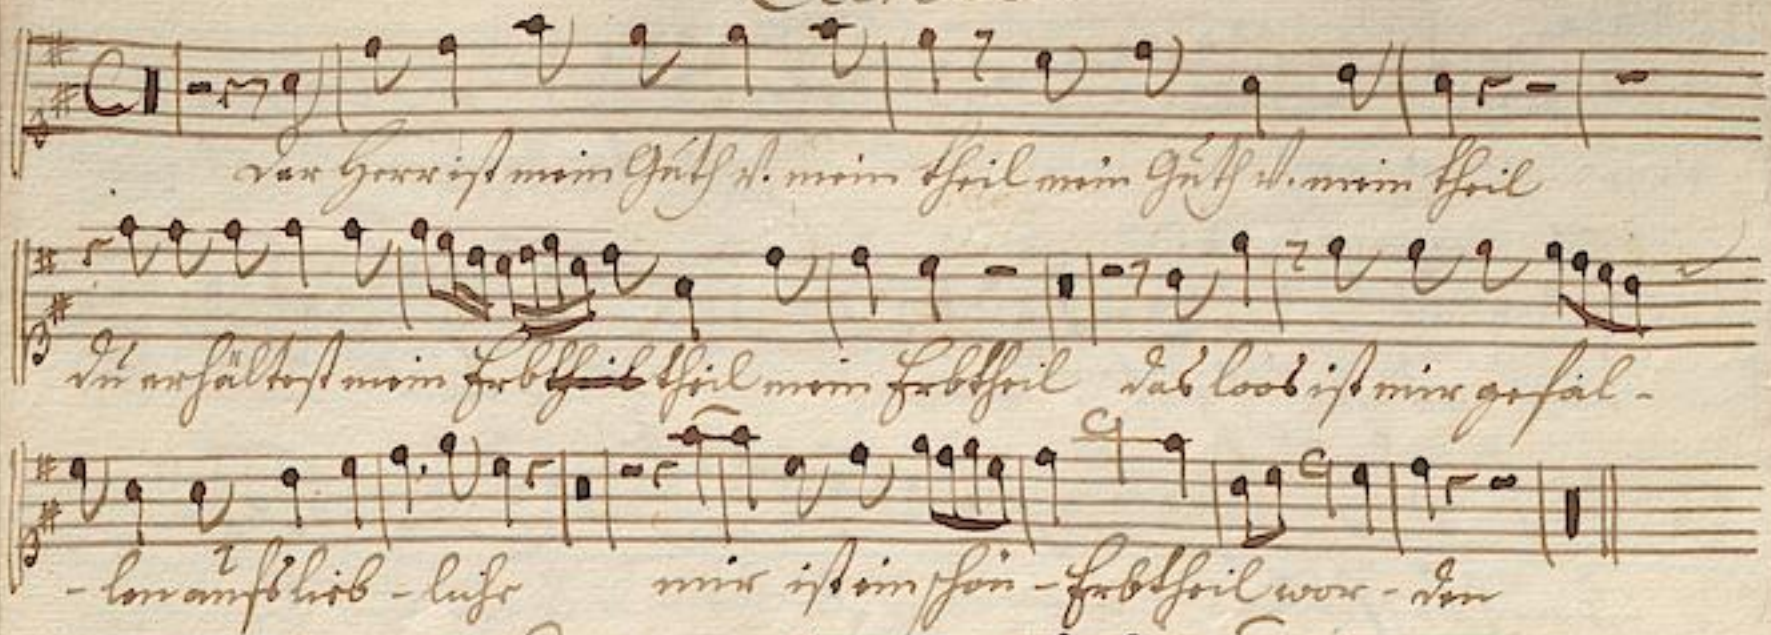 Der Herr ist mein Guth v. mein theil mein Guth v. mein theil
du erhältest mein Erbtheil theil mein Erbtheil das loos ist mir gefal-
-len aufs lieb-lichs mir ist ein schön-Erbtheil wor-den